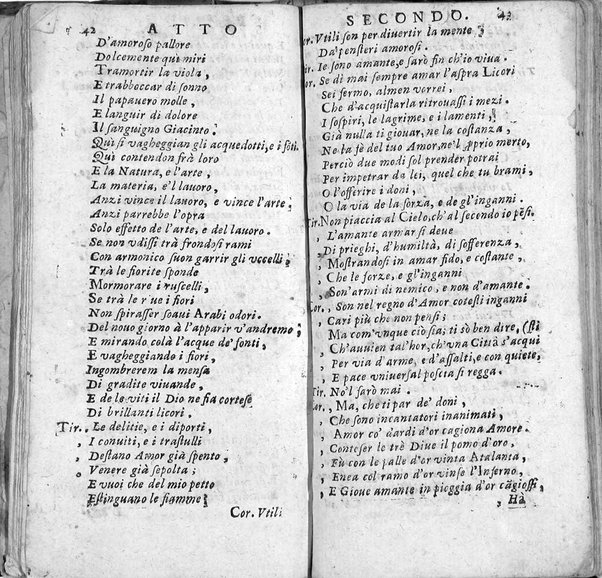 42 ATTO
D'amoroso pallore
Dolcemente qui miri
Tramortir la viola,
E trabboccar di sonno
Il papauero molle,
E languir di dolore
Il sanguigno Giacinto.
Qui si vagheggian gli acquedotti, e i fõti.
Qui contendon frà loro
E la Natura, e l'arte,
La materia, e'l lauoro,
Anzi vince il lauoro, e vince l'arte,
Anzi parrebbe l'opra
Solo effetto de l'arte, e del lauoro.
Se non vdissi trà frondosi rami
Con armonico suon garrir gli vccelli;
Trà le fiorite sponde
Mormorare i ruscelli,
Se trà le riue i fiori
Non spirasser soaui Arabi odori.
Del nouo giorno à l'apparir v'andremo;
E mirando colà l'acque de' fonti,
E vagheggiando i fiori,
Ingombrerem la mensa
Di gradite viuande,
E de le viti il Dio ne fia cortese
Di brillanti licori.
Tir. Le delitie, e i diporti,
I conuiti, e i trastulli
Destano Amor già spento,
Venere già sepolta;
E vuoi che del mio petto
Estinguano le fiamme?
Cor. Vtili
SECONDO. 43
Cor. Vtili son per diuertir la mente
Da' pensieri amorosi.
Tir. Io sono amante, e sarò fin ch'io viua.
Cor. Se di mai sempre amar l'aspra Licori
Sei fermo, almen vorrei,
Che d'acquistarla ritrouassi i mezi.
I sospiri, le lagrime, e i lamenti,
Già nulla ti giouar, ne la costanza,
Ne la fè del tuo Amor, ne'l proprio merto,
Perciò due modi sol prender potrai
Per impetrar da lei, quel che tu brami,
O l'offerire i doni,
O la via de la forza, e de gl'inganni.
Tir. Non piaccia al Cielo, ch'al secondo io pẽsi.
L'amante armar si deue
Di prieghi, d'humiltà, di sofferenza,
Mostrandosi in amar fido, e costante,
Che le forze, e gl'inganni
Son'armi di nemico, e non d'amante.
Cor. Son nel regno d'Amor cotesti inganni
Cari più che non pensi;
Ma com'vnque ciò sia; ti sò ben dire, (sti
Ch'auuien tal'hor, ch'vna Città s'acqui
Per via d'arme, e d'assalti, e con quiete,
E pace vniuersal poscia si regga.
Tir. No'l sarò mai.
Cor. Ma, che ti par de' doni,
Che sono incantatori inanimati,
Amor co' dardi d'or cagiona Amore.
Conteser le trè Diue il pomo d'oro,
Fù con le palle d'or vinta Atalanta,
Enea col ramo d'or vinse l'Inferno,
E Gioue amante in pioggia d'or cãgiossi,
Hà